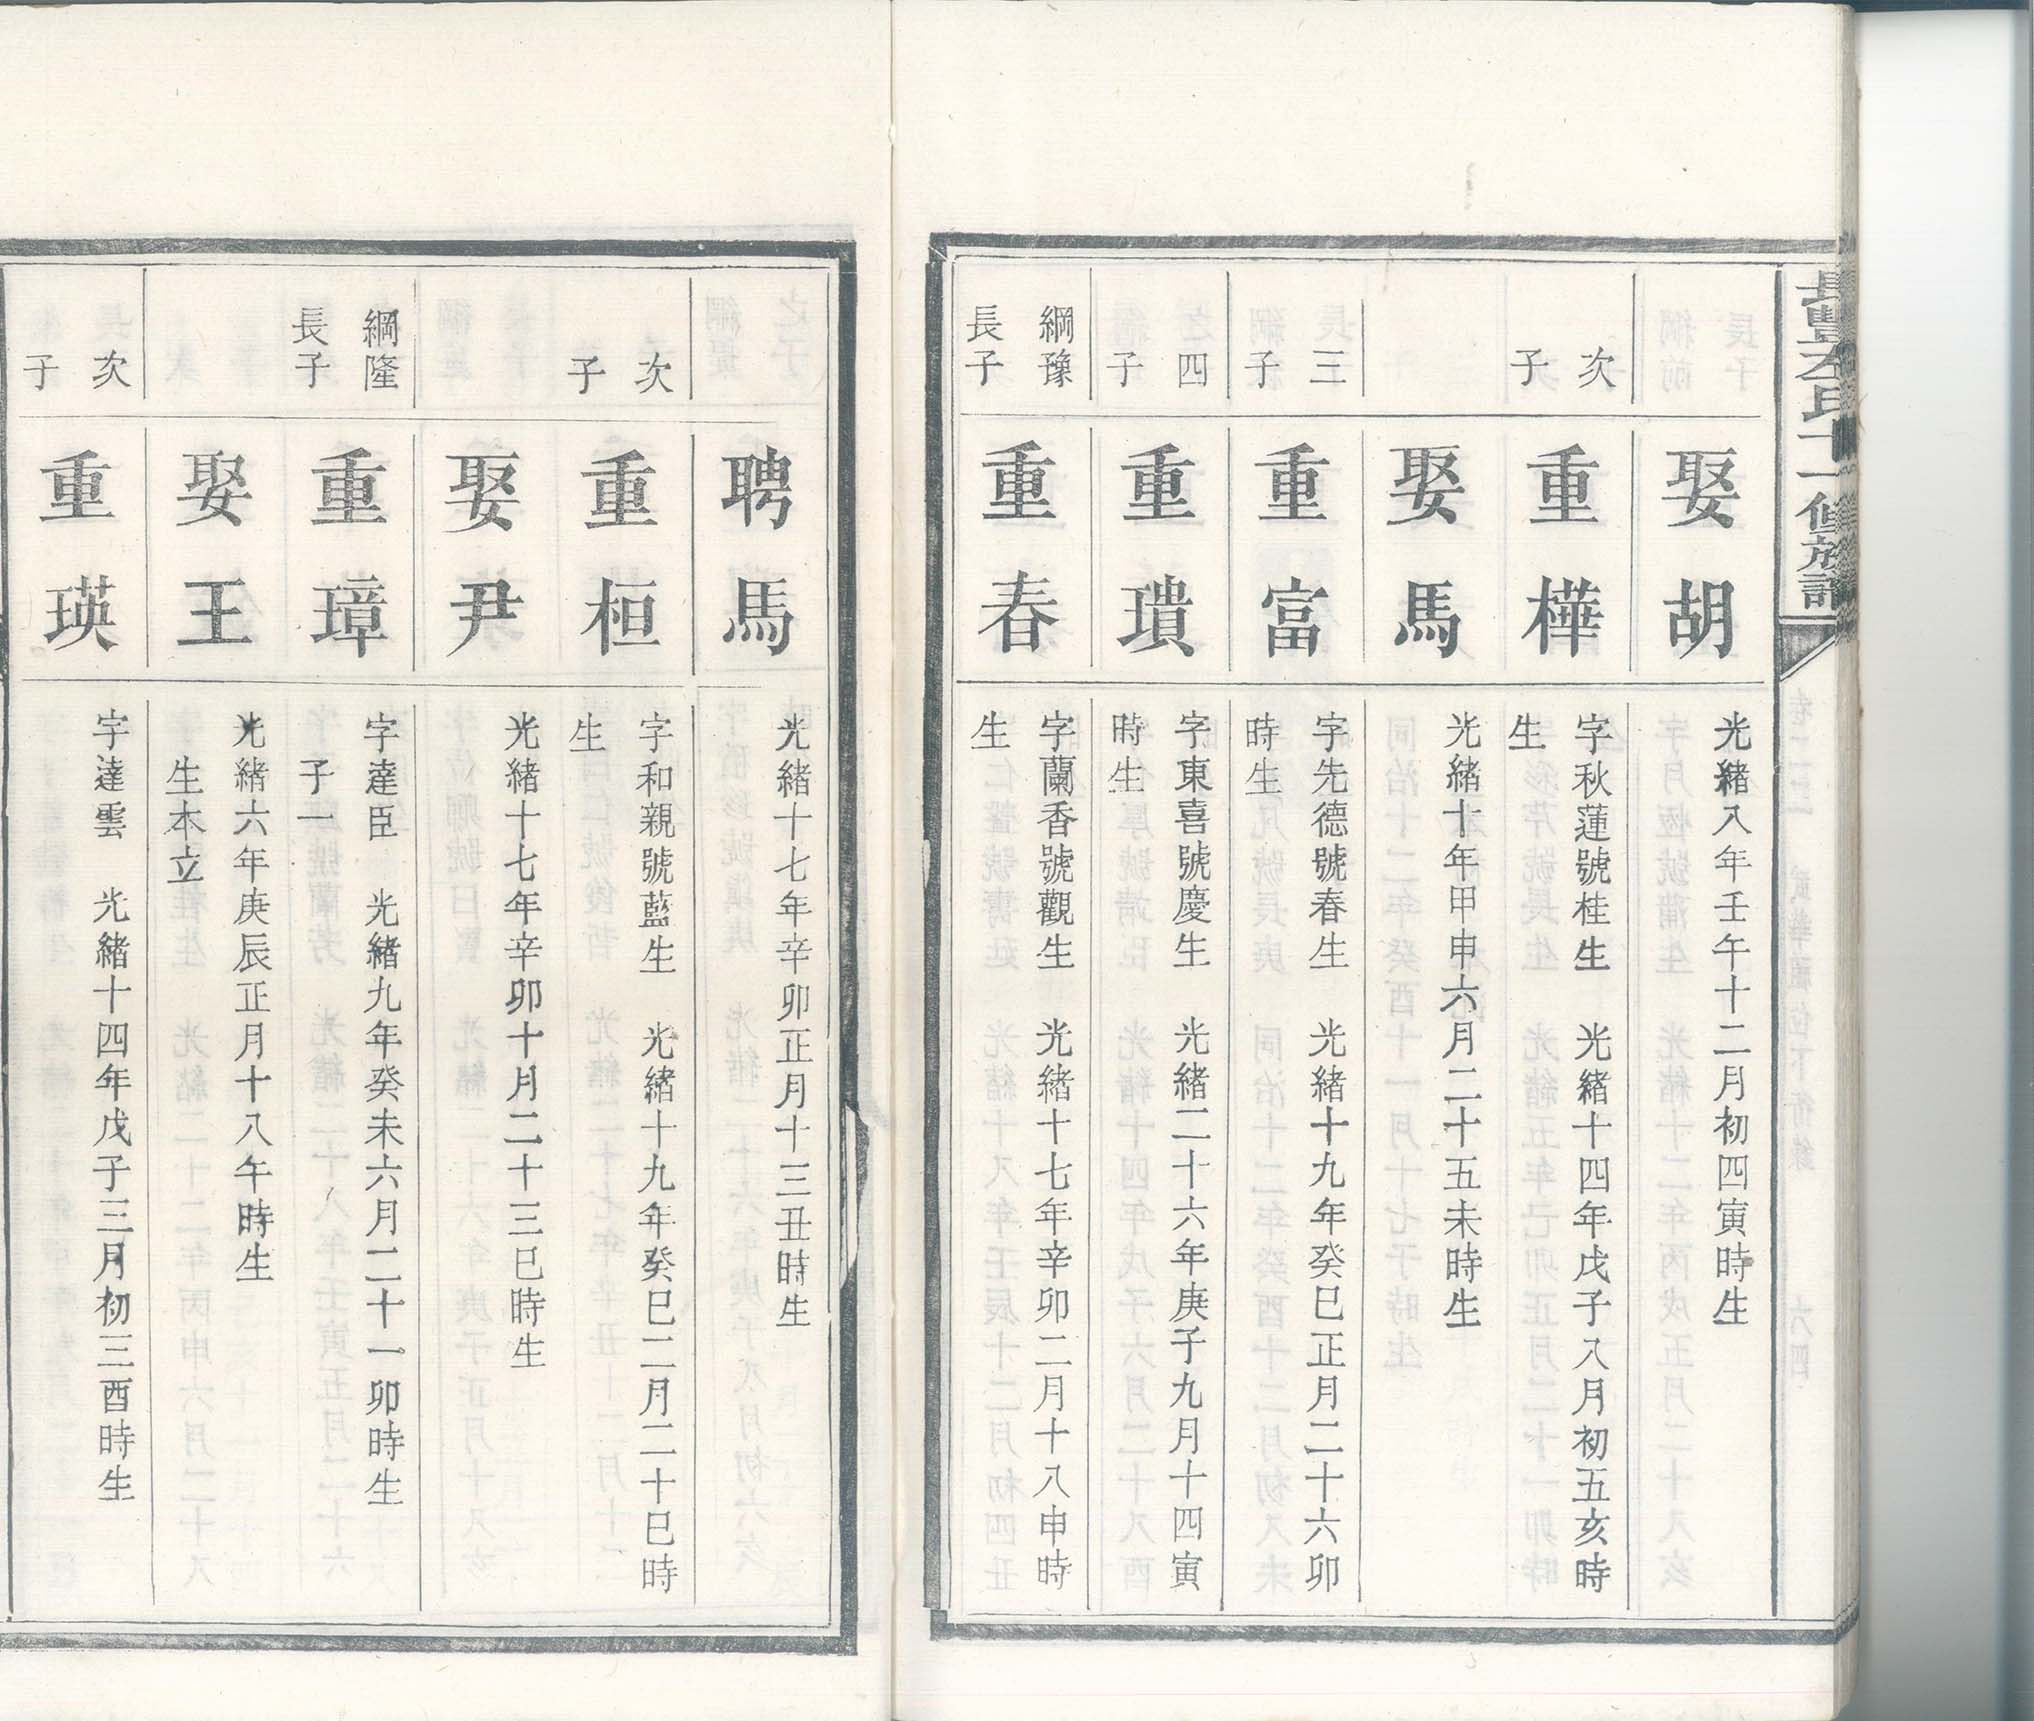 長豐左氏十一修族譜
娶胡
光緒八年壬午十二月初四寅時生
次子
重樺
字秋蓮號桂生　光緒十四年戊子八月初五亥時
生
娶馬
光緒十年甲申六月二十五未時生
三子
重富
字先德號春生　光緒十九年癸巳正月二十六卯
時生
四子
重璝
字東喜號慶生　光緒二十六年庚子九月十四寅
時生
綱豫
長子
重春
字蘭香號觀生　光緒十七年辛卯二月十八申時
生
聘馬
光緒十七年辛卯正月十三丑時生
次子
重桓
字和親號藍生　光緒十九年癸巳二月二十巳時
生
娶尹
光緒十七年辛卯十月二十三巳時生
綱隆
長子
重璋
字達臣　光緒九年癸未六月二十一卯時生
子一
娶王
光緒六年庚辰正月十八午時生
生本立
次子
重瑛
字達雲　光緒十四年戊子三月初三酉時生